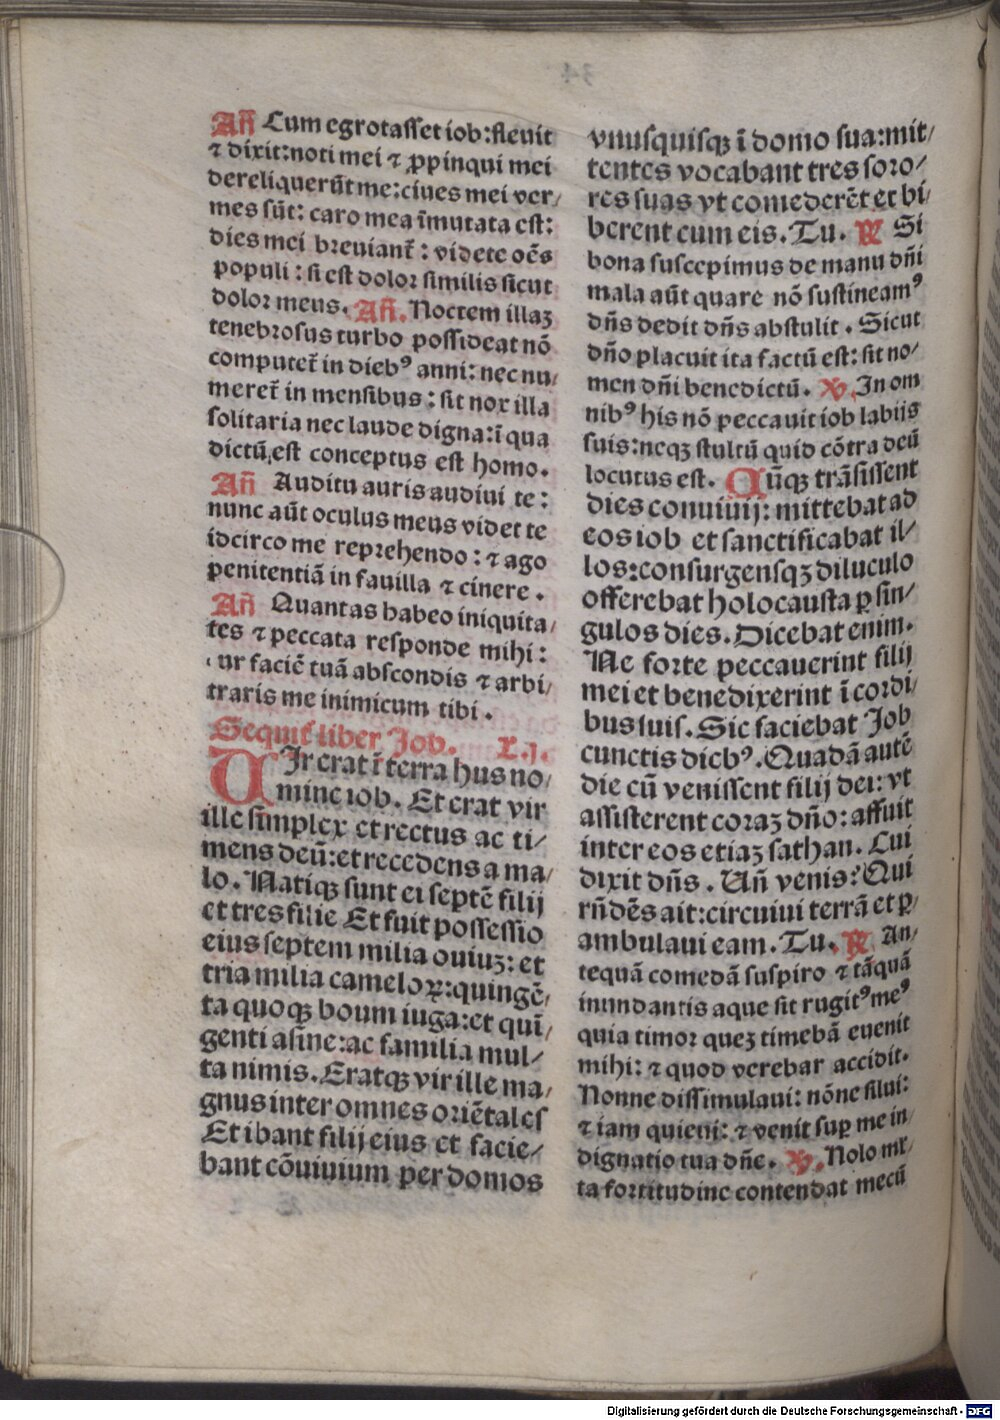 Añ Cum egrotasset iob:fleuit
⁊ dixit:noti mei ⁊ ꝓpinqui mei
dereliquerūt me:ciues mei ver/
mes sūt: caro mea īmutata est:
dies mei breuiant᷑ : videte oēs
populi : si est dolor similis sicut
dolor meus. Añ. Noctem illaꝫ
tenebrosus turbo possideat nō
computet᷑ in diebꝰ anni: nec nu/
meret᷑ in mensibus : sit nox illa
solitaria nec laude digna:ī qua
dictū est conceptus est homo.
Añ Auditu auris audiui te :
nunc aūt oculus meus videt te
idcirco me reprehendo : ⁊ ago
penitentiā in fauilla ⁊ cinere .
Añ Quantas habeo iniquita/
tes ⁊ peccata responde mihi :
ur faciē tuā abscondis ⁊ arbi/
traris me inimicum tibi .
Sequit᷑ liber Job. x.j.
UIr erat ī terra hus no/
mine iob. Et erat vir
ille simplex et rectus ac ti/
mens deū:et recedens a ma/
lo. Natiqꝫ sunt ei septē filij
et tres filie Et fuit possessio
eius septem milia ouiuꝫ: et
tria milia cameloꝝ:quingē/
ta quoqꝫ boum iuga:et quī/
genti asine:ac familia mul/
ta nimis. Eratqꝫ vir ille ma/
gnus inter omnes oriētales
Et ibant filij eius et facie/
bant cōuiuium per domos
vnusquisqꝫ ī domo sua:mit/
tentes vocabant tres soro/
res suas vt comederēt et bi/
berent cum eis. Tu. ℟ Si
bona suscepimus de manu dñi
mala aūt quare nō sustineamꝰ
dñs dedit dñs abstulit . Sicut
dño placuit ita factū est: sit no/
men dñi benedictū. ℣. In om
nibꝰ his nō peccauit iob labiis
suis:neqꝫ stultū quid cōtra deū
locutus est. Cūqꝫ trāsissent
dies conuiuij: mittebat ad
eos iob et sanctificabat il/
los:consurgensqꝫ diluculo
offerebat holocausta ꝑ sin/
gulos dies. Dicebat enim.
Ne forte peccauerint filij
mei et benedixerint ī cordi/
bus suis. Sic faciebat Job
cunctis diebꝰ. Quadā autē
die cū venissent filij dei: vt
assisterent coraꝫ dño: affuit
inter eos etiaꝫ sathan. Cui
dixit dñs . Uñ venis? Qui
rñdēs ait:circuiui terrā et ꝑ/
ambulaui eam. Tu. ℟ An/
tequā comedā suspiro ⁊ tāquā
inundantis aque sit rugitꝰ meꝰ
quia timor queꝫ timebā euenit
mihi: ⁊ quod verebar accidit.
Nonne dissimulaui: nōne silui:
⁊ iam quieui: ⁊ venit suꝑ me in/
dignatio tua dñe. ℣. Nolo ml᷑/
ta fortitudine contendat mecū
Digitalisierung gefördert durch die Deutsche Forschungsgemeinschaft - DFG